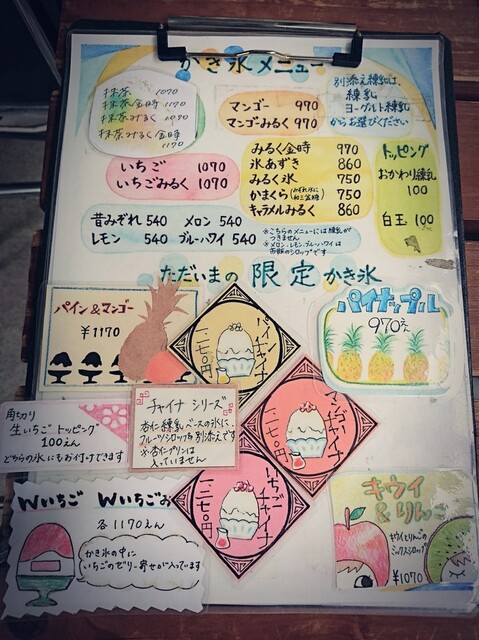 かき氷メニュー
抹茶 1070
抹茶金時 1170
抹茶みるく
抹茶みるく金時
1190
マンゴー 990
マンゴみるく 990
別添え練乳は、
練乳
ヨーグルト練乳
からお選びください
いちご 1070
いちごみるく 1070
みるく金時 970
氷あずき 860
みるく氷 750
かまくら 750
キャラメルみるく 860
トッピング
おかわり練乳
100
白玉 100
昔みぞれ 540 メロン 540
レモン 540 ブルーハワイ 540
※こちらのメニューには練乳が
つきません
※メロン、レモン、ブルーハワイは
市販のシロップです
ただいまの 限定 かき氷
パイン&マンゴー
¥1170
パインチャイナ
パイナップル
970えん
角切り
生いちごトッピング
100えん
どちらの氷にもお付けできます
チャイナシリーズ
杏仁練乳ベースの氷に、
フルーツシロップを別添えです
※杏仁プリンは
入っていません
マンゴーチャイナ
いちごチャイナ
Wいちご Wいちごみ
各1170えん
かき氷の中に
いちごのゼリー寄せが入っています
キウイ
&りんご
キウイとりんごの
ミックスシロップ
¥1070